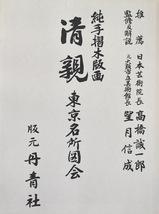 推薦 日本芸術院長 高橋誠一郎
監修と解説 大阪市立美術館長 望月信成
純手摺木版画
清親
東京名所図会
版元 丹青社